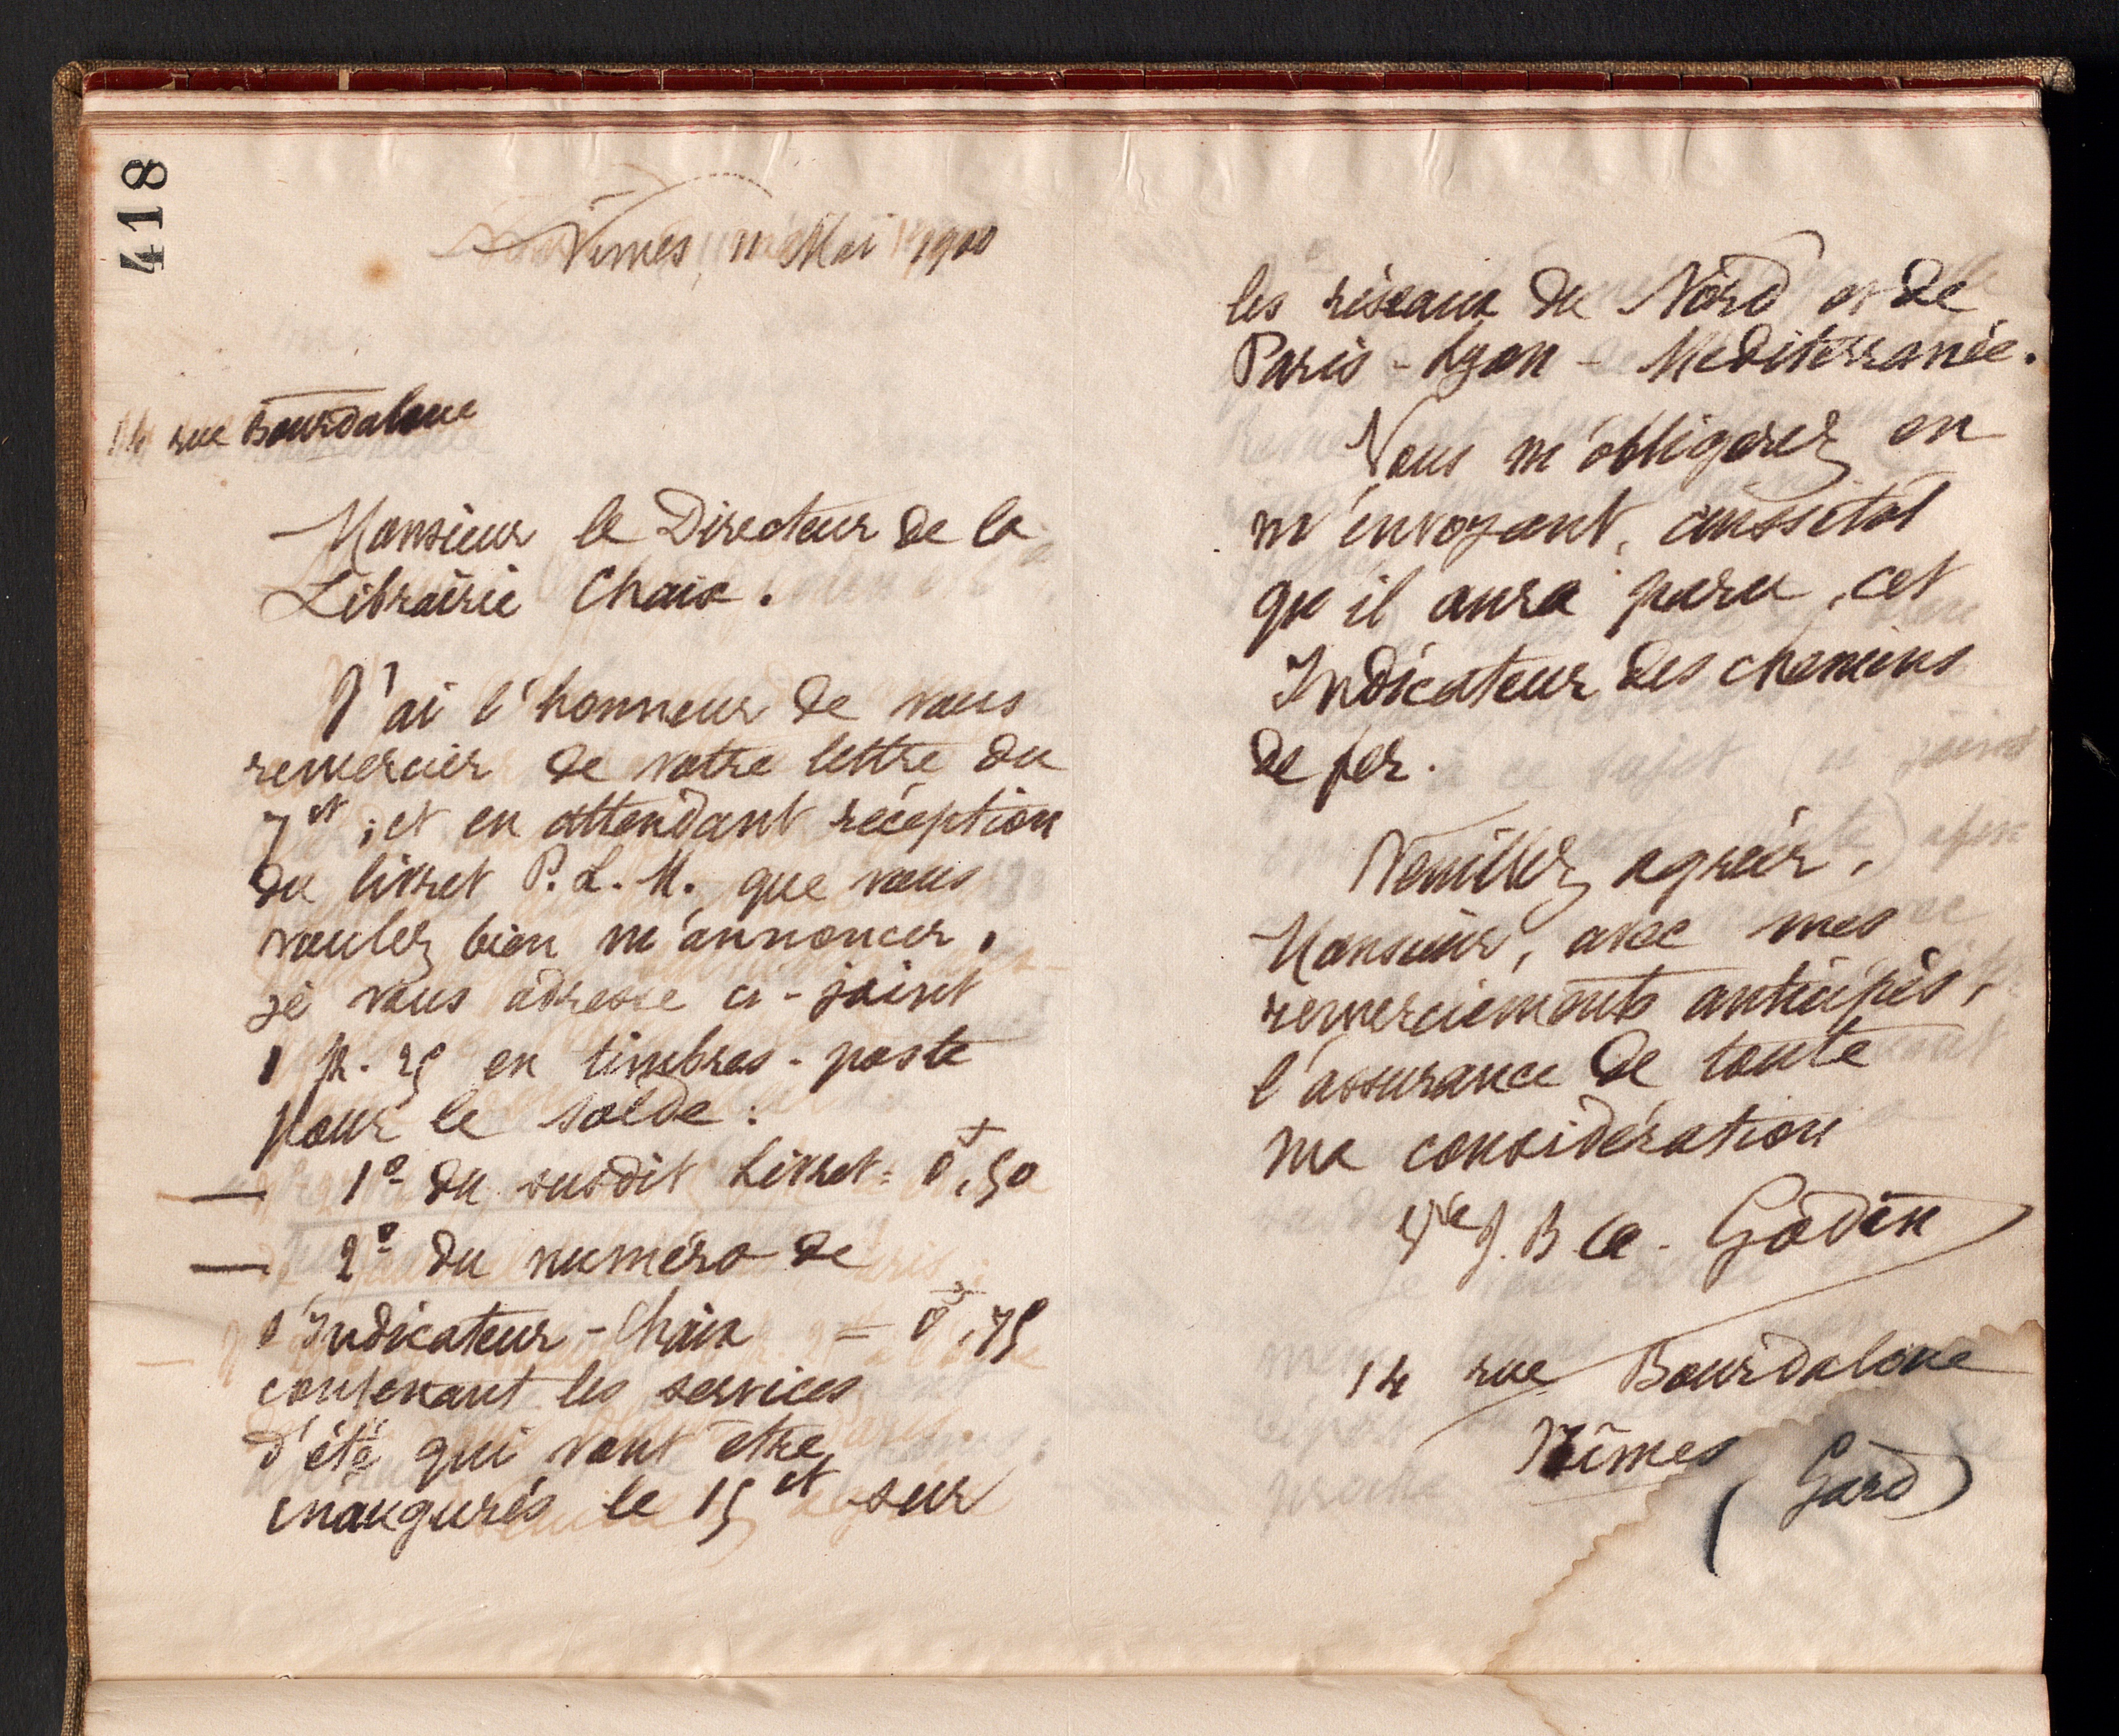 418
Nîmes, 11 Mai 1900
14 rue Bourdaloue
Monsieur le Directeur de la
Librairie Chaix.
J'ai l'honneur de vous
remercier de votre lettre du
7 ct ; et en attendant réception
du livret P. L. M. que vous
voulez bien m'annoncer,
je vous adresse ci-joint
1 fr. 25 en timbres-poste
pour le solde :
— 1º du susdit Livret = 0f,50
— 2º du numéro de
l'Indicateur-Chaix = 0f,75
contenant les services
d'été qui vont être
inaugurés le 15 ct sur
les réseaux du Nord et de
Paris-Lyon-Méditerranée.
Vous m'obligerez en
m'envoyant, aussitôt
qu'il aura paru, cet
Indicateur des chemins
de fer.
Veuillez agréer,
Monsieur, avec mes
remerciements anticipés,
l'assurance de toute
ma considération
Vve J. Bte A. Godin
14 rue Bourdaloue
Nîmes
(Gard)